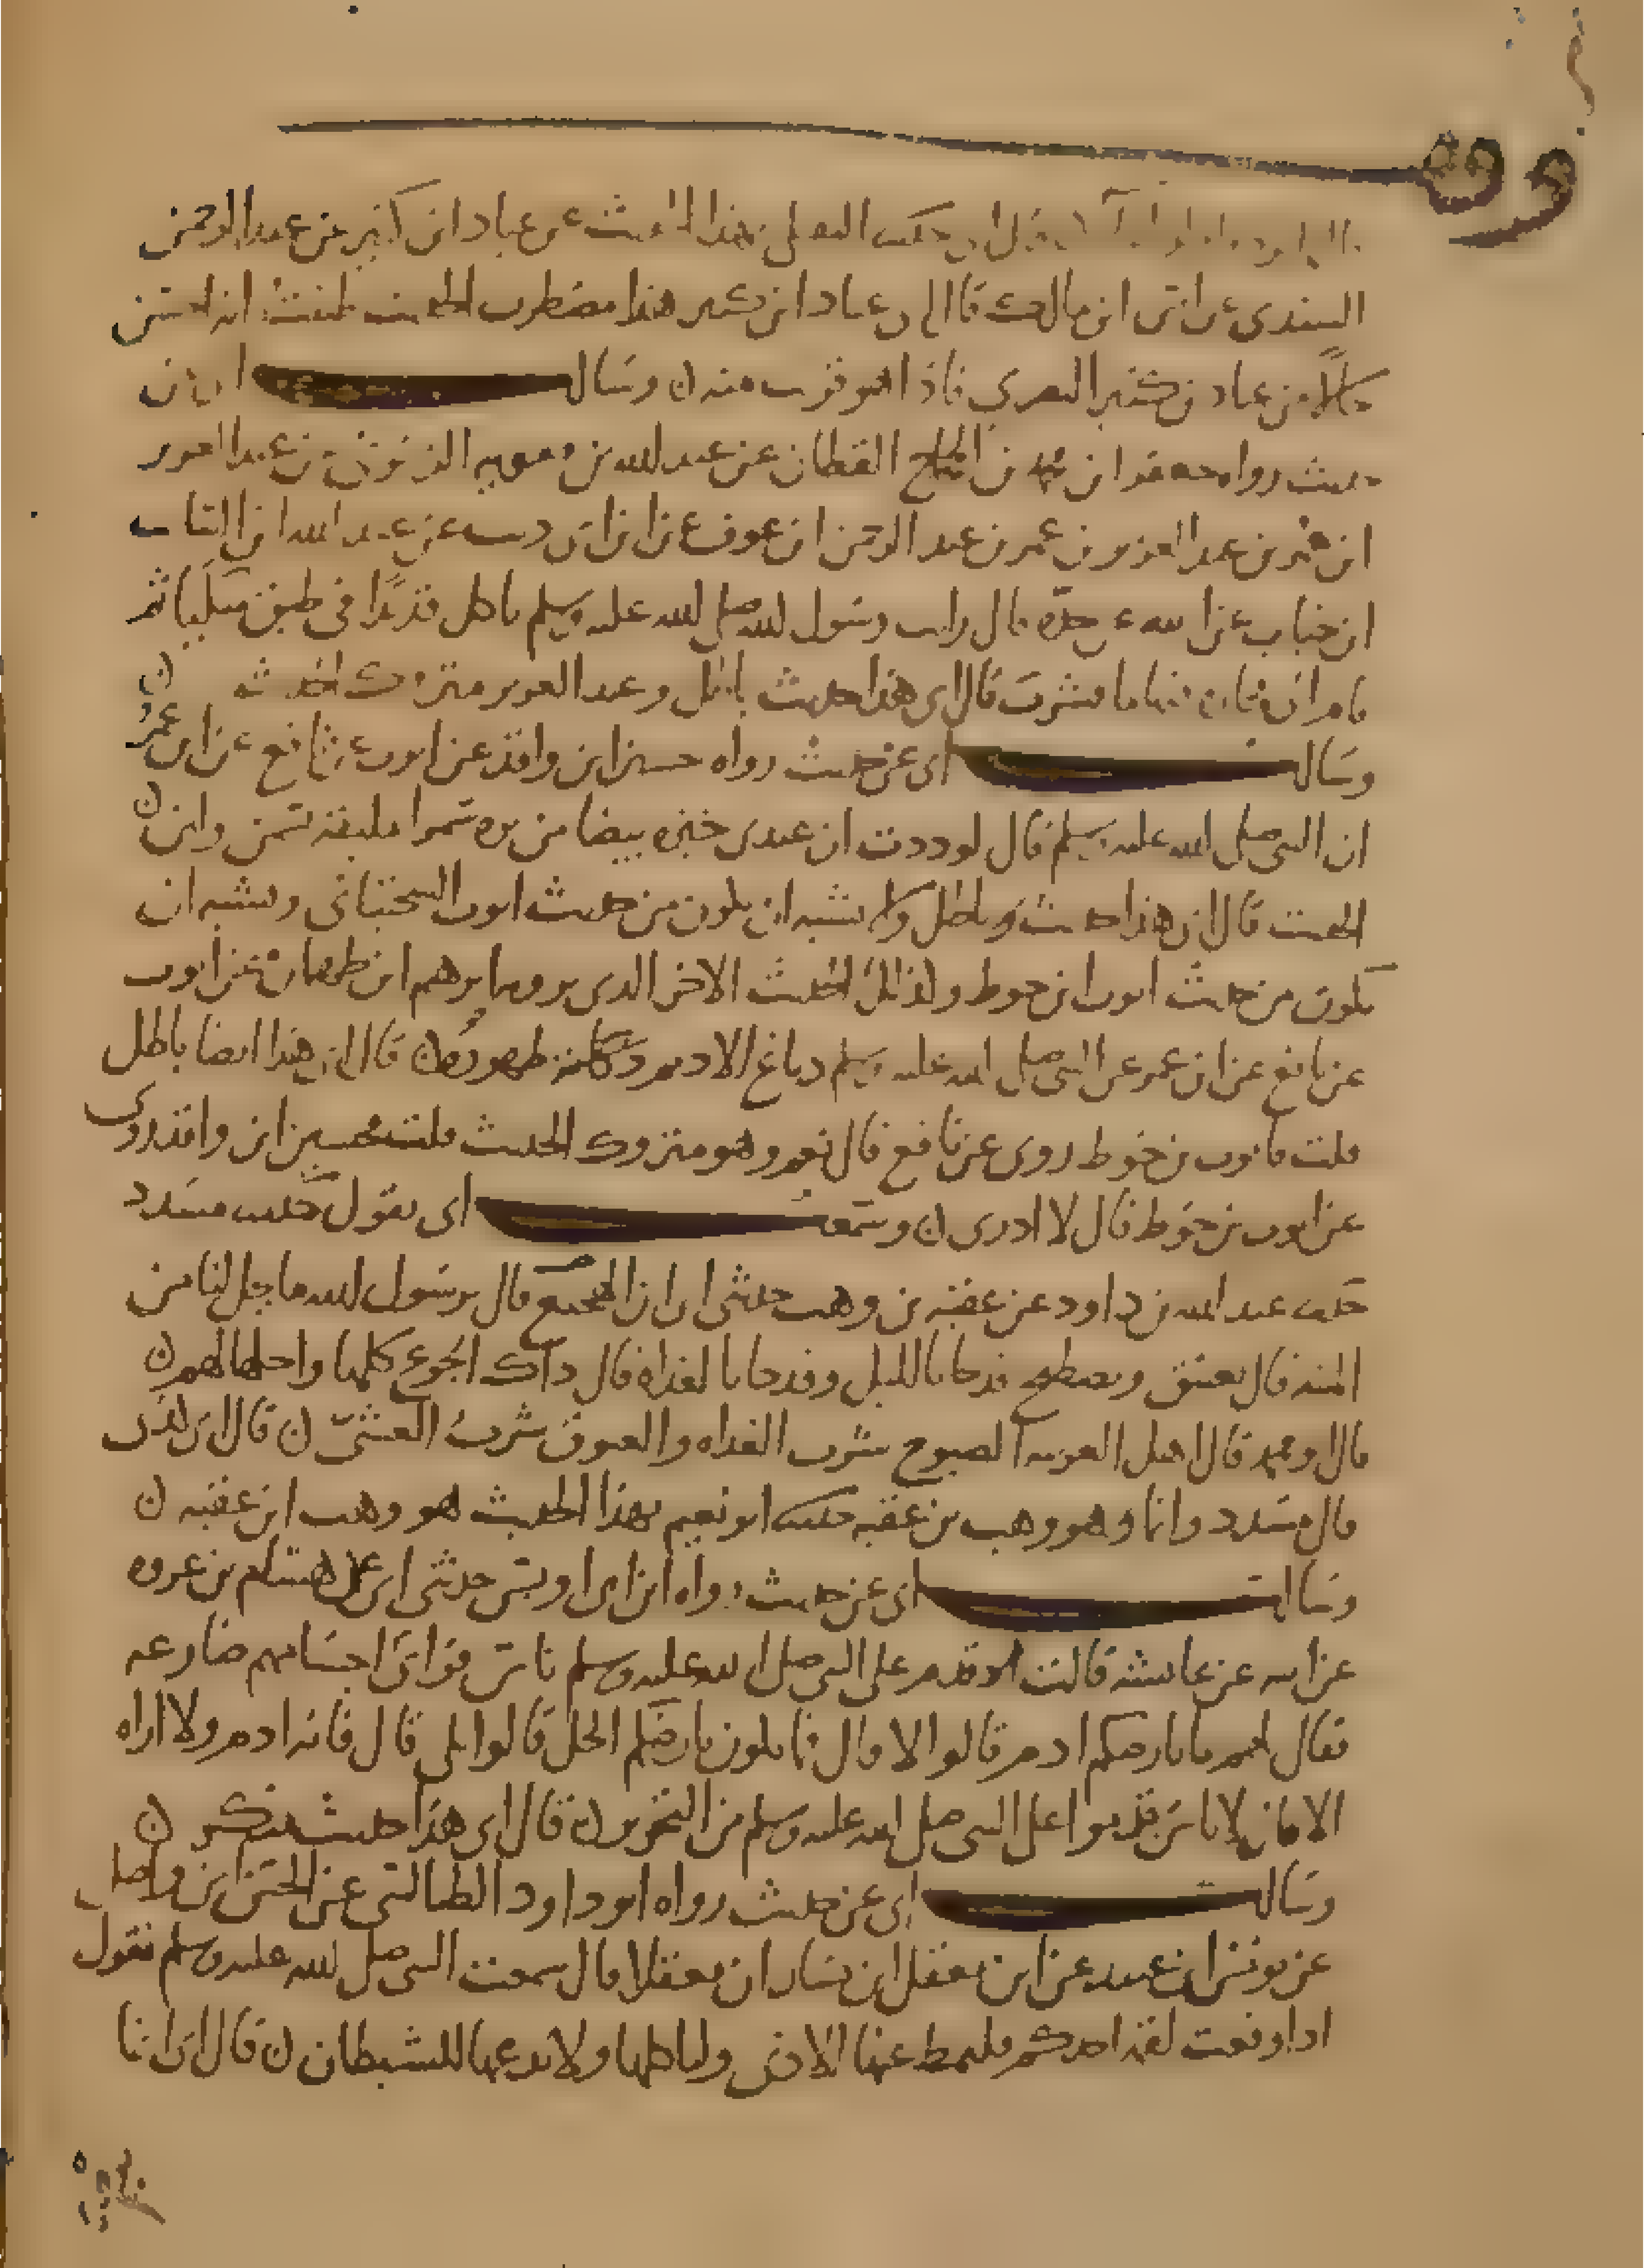 وقف
حكيت الى هذا الحديث عن عباد ابن كثير عن عبد الرحمن
السندى عن انس ابن مالك قال ابي عباد ابن كثير هذا مضطرب الحديث ظننت انه احسن
حالا من عباد بن كثير البصري فاذا هو قريب منه ن وسالت ابي عن
حديث رواه جعفر ابن محمد بن الحجاج القطان عن عبد الله بن معويه الزيتوني عن عبد العزيز
ابن عمر بن عبد العزيز بن عمر بن عبد الرحمن ابن عوف عن ابن ابي ذيب عن عبد الله ابن السايب
ابن خباب عن ابيه عن جده قال رايت رسول الله صلى الله عليه وسلم ياكل قديدا في طبق متكيا ثم
قام الى فخاره فيها ما فشرب قال ابي هذا حديث باطل وعبد العزيز متروك الحديث
وسالت ابي عن حديث رواه حسين ابن واقد عن ايوب عن نافع عن ابن عمر ن
ان النبي صلى الله عليه وسلم قال لوددت ان عندى خبزه بيضا من بره سمرا ملبقه بسمن ولبن ن
الحديث قال ان هذا حديث باطل ولا يشبه ان يكون من حديث ايوب السختياني ويشبه ان
يكون من حديث ايوب ابن خوط وكذلك الحديث الاخر الذي يرويه ابرهيم ابن طهمان عن ايوب
عن نافع عن ابن عمر عن النبي صلى الله عليه وسلم دباغ الاديم ذكاته طهوره ن قال ابي هذا ايضا باطل
قلت فايوب بن خوط روى عن نافع قال نعم وهو متروك الحديث قلت فحسين ابن واقد روى
عن ايوب بن خوط قال لا ادرى ن وسمعت ابي يقول حديث مسدد
حديث عبد الله بن داود عن عقبه بن وهب حدثني ابي ان الفجيع قال يرسول الله ما يحل لنا من
الميته قال يغتبق ويصطبح قدحا بالليل وقدحا بالغداه قال ذاك الجوع كلها واحلها لهم ن
قال ابو محمد قال اهل العربيه الصبوح شرب الغداه والغبوق شرب العشي ن قال ابي كذي
قال مسدد وانما وهو وهب بن عقبه حديث ابو نعيم بهذا الحديث هو وهب ابن عقبه ن
وسالت ابي عن حديث رواه ابن ابي اويس حدثني ابي عن هشام بن عروه
عن ابيه عن عايشه قالت قدم على النبي صلى الله عليه وسلم ناس فراى اجسامهم ضارعه
فقال لهم ما بارضكم ادم قالوا لا قال فما يكون بارضكم الخل قالوا بلى قال فانه ادم ولا اراه
الا قال لاناس قدموا على النبي صلى الله عليه وسلم من البحرين ن قال ابي هذا حديث منكر ن
وسالت ابي عن حديث رواه ابو داود الطيالسي عن الحسن ابن واصل
عن يونس ابن عبيد عن ابن معقل ابن يسار ان معقلا قال سمعت النبي صلى الله عليه وسلم يقول
اذا وقعت لقمه احدكم فليمط عنها الاذى ولياكلها ولا يدعها للشيطان ن قال ابي انما